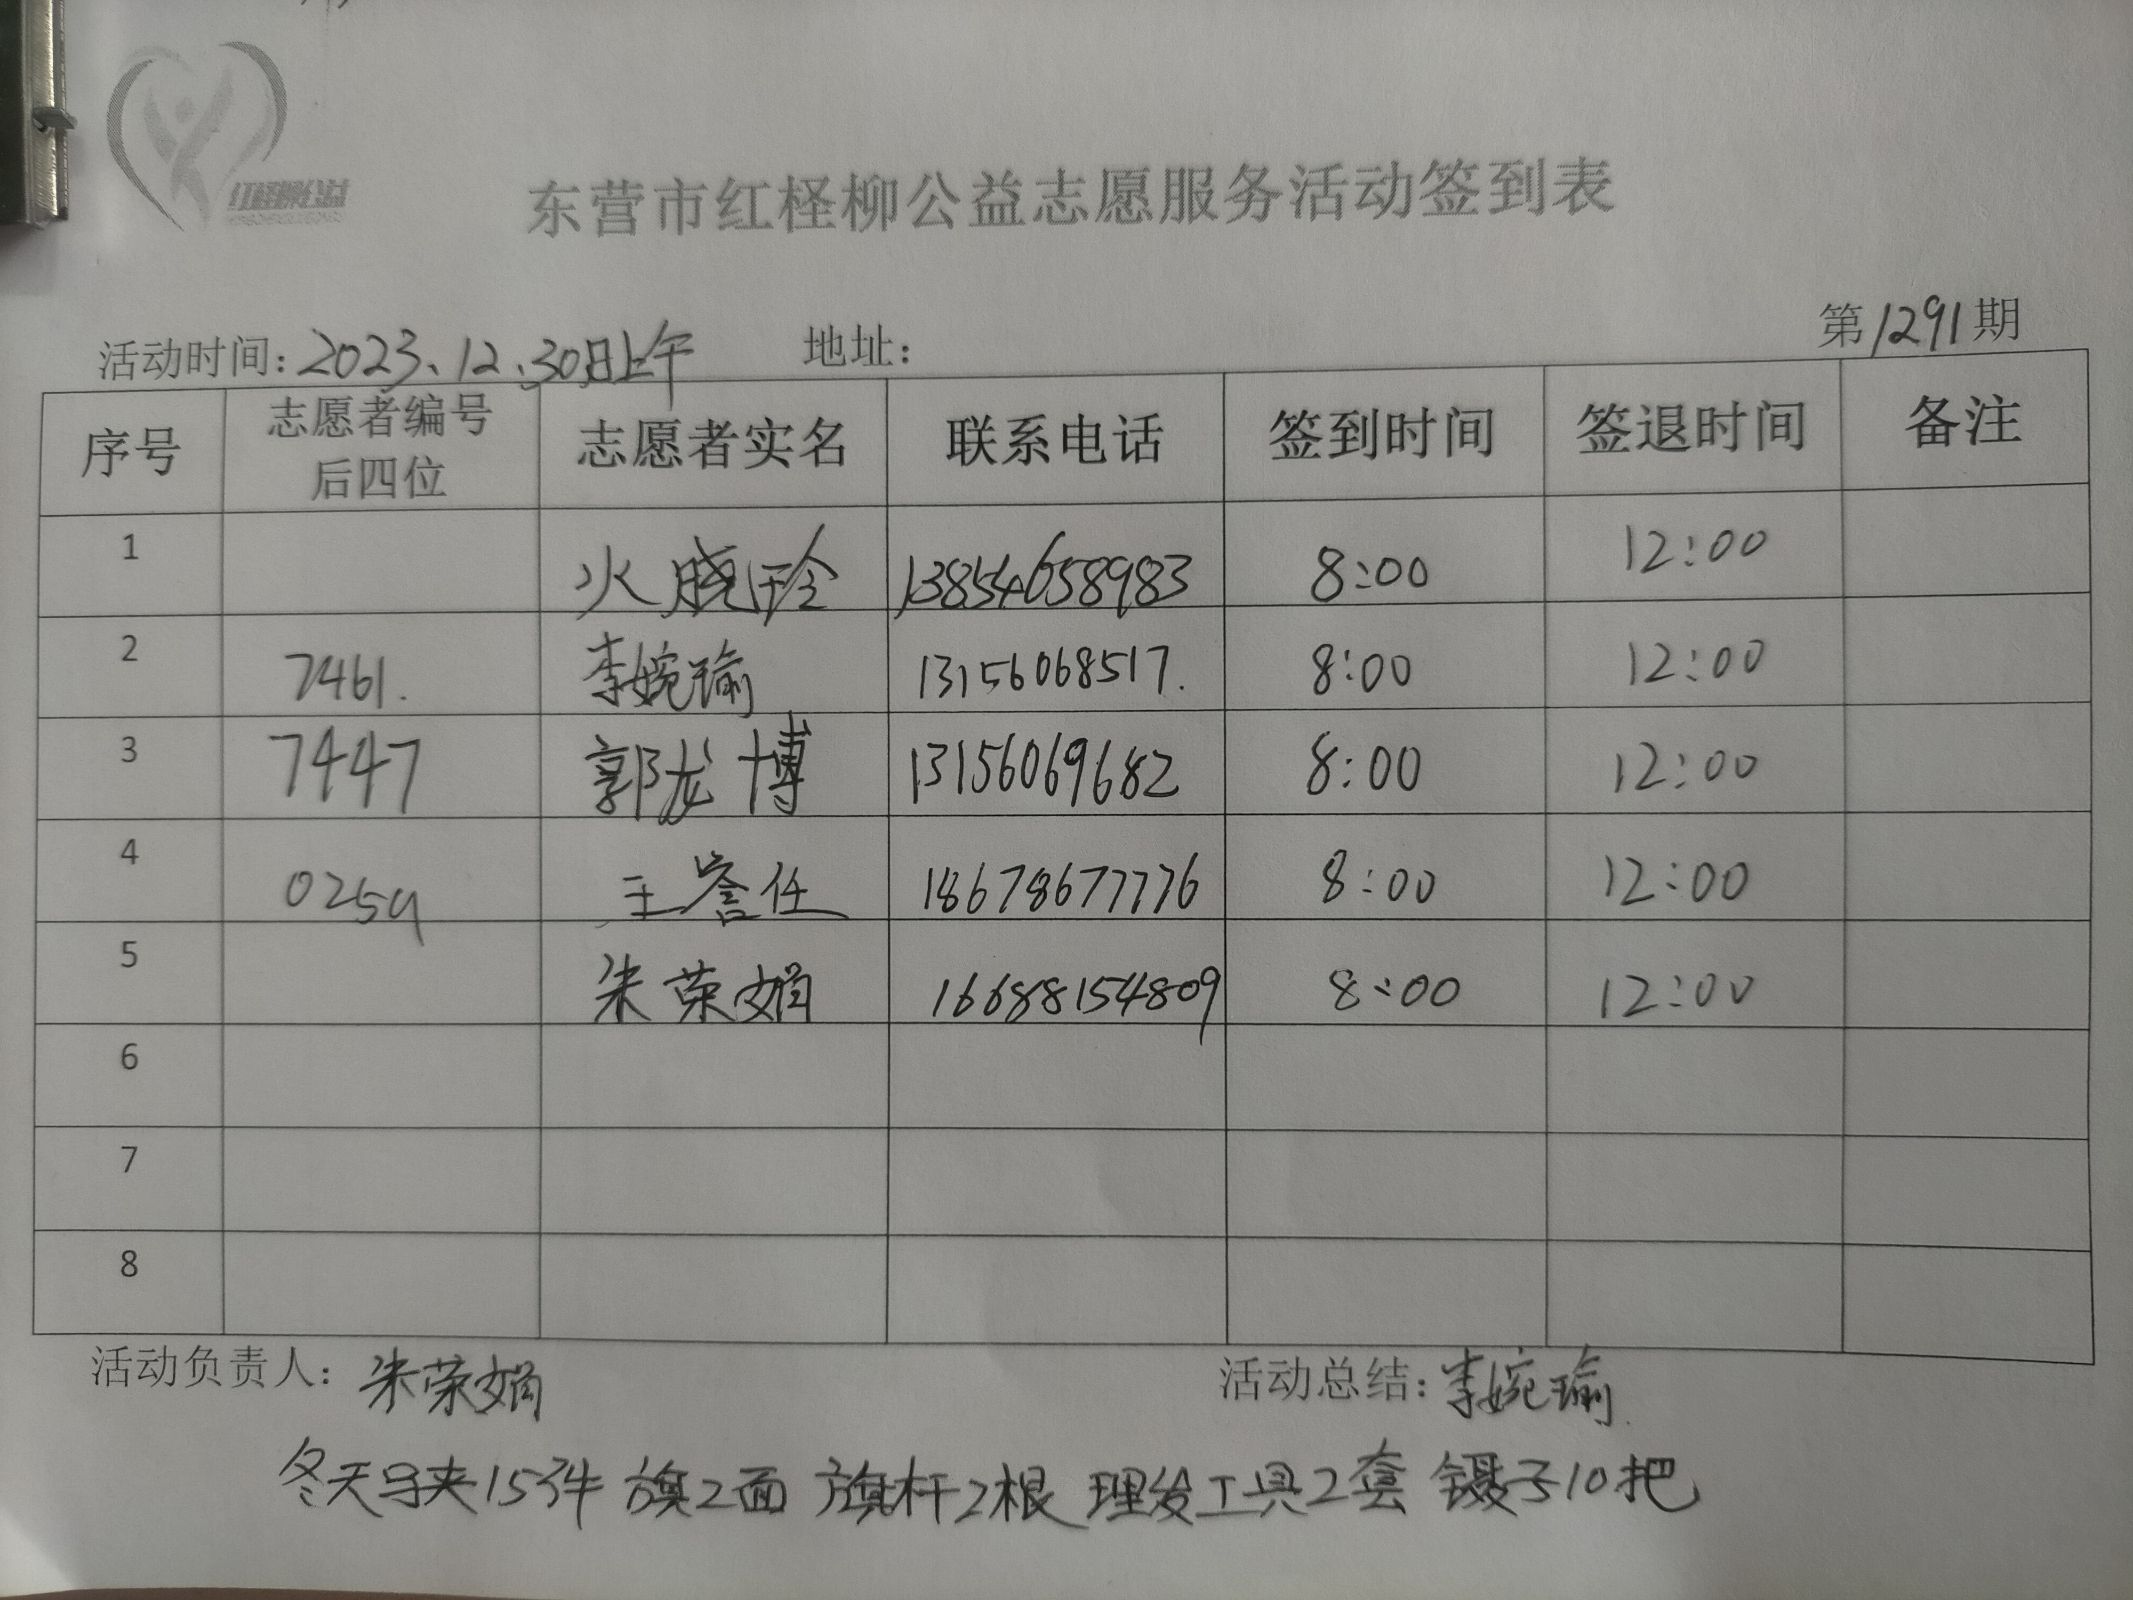 红柽柳公益
东营市红柽柳公益志愿服务活动签到表
第1291期
活动时间:2023.12.30日上午 地址:
序号 志愿者编号后四位 志愿者实名 联系电话 签到时间 签退时间 备注
1 火晓玲 13854658983 8:00 12:00
2 7461. 李婉瑜 13156068517. 8:00 12:00
3 7447 郭龙博 13156069682 8:00 12:00
4 0259 王誉任 18678677776 8:00 12:00
5 朱荣娟 16688154809 8:00 12:00
6
7
8
活动负责人:朱荣娟 活动总结:李婉瑜
冬天马夹15件 旗2面 旗杆2根 理发工具2套 镊子10把